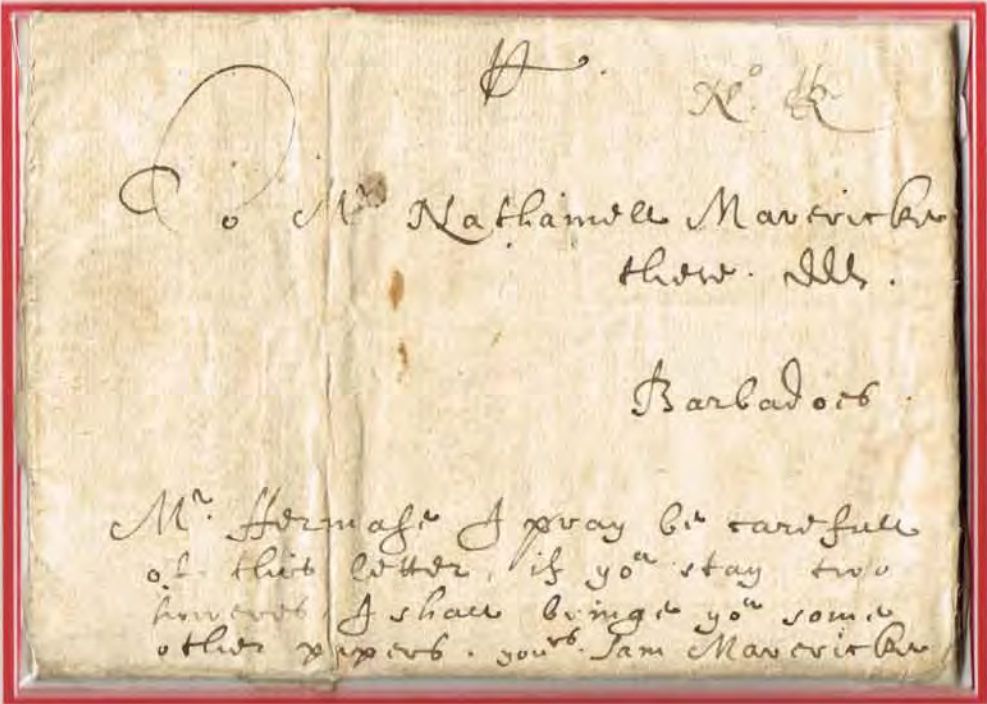 To Mr Nathaniell Mavericke
there. ddd.
Barbadoes.
Mr. I pray be carefull
of this letter, if you stay two
howeres I shall bringe you some
other papers. yours. Sam Mavericke